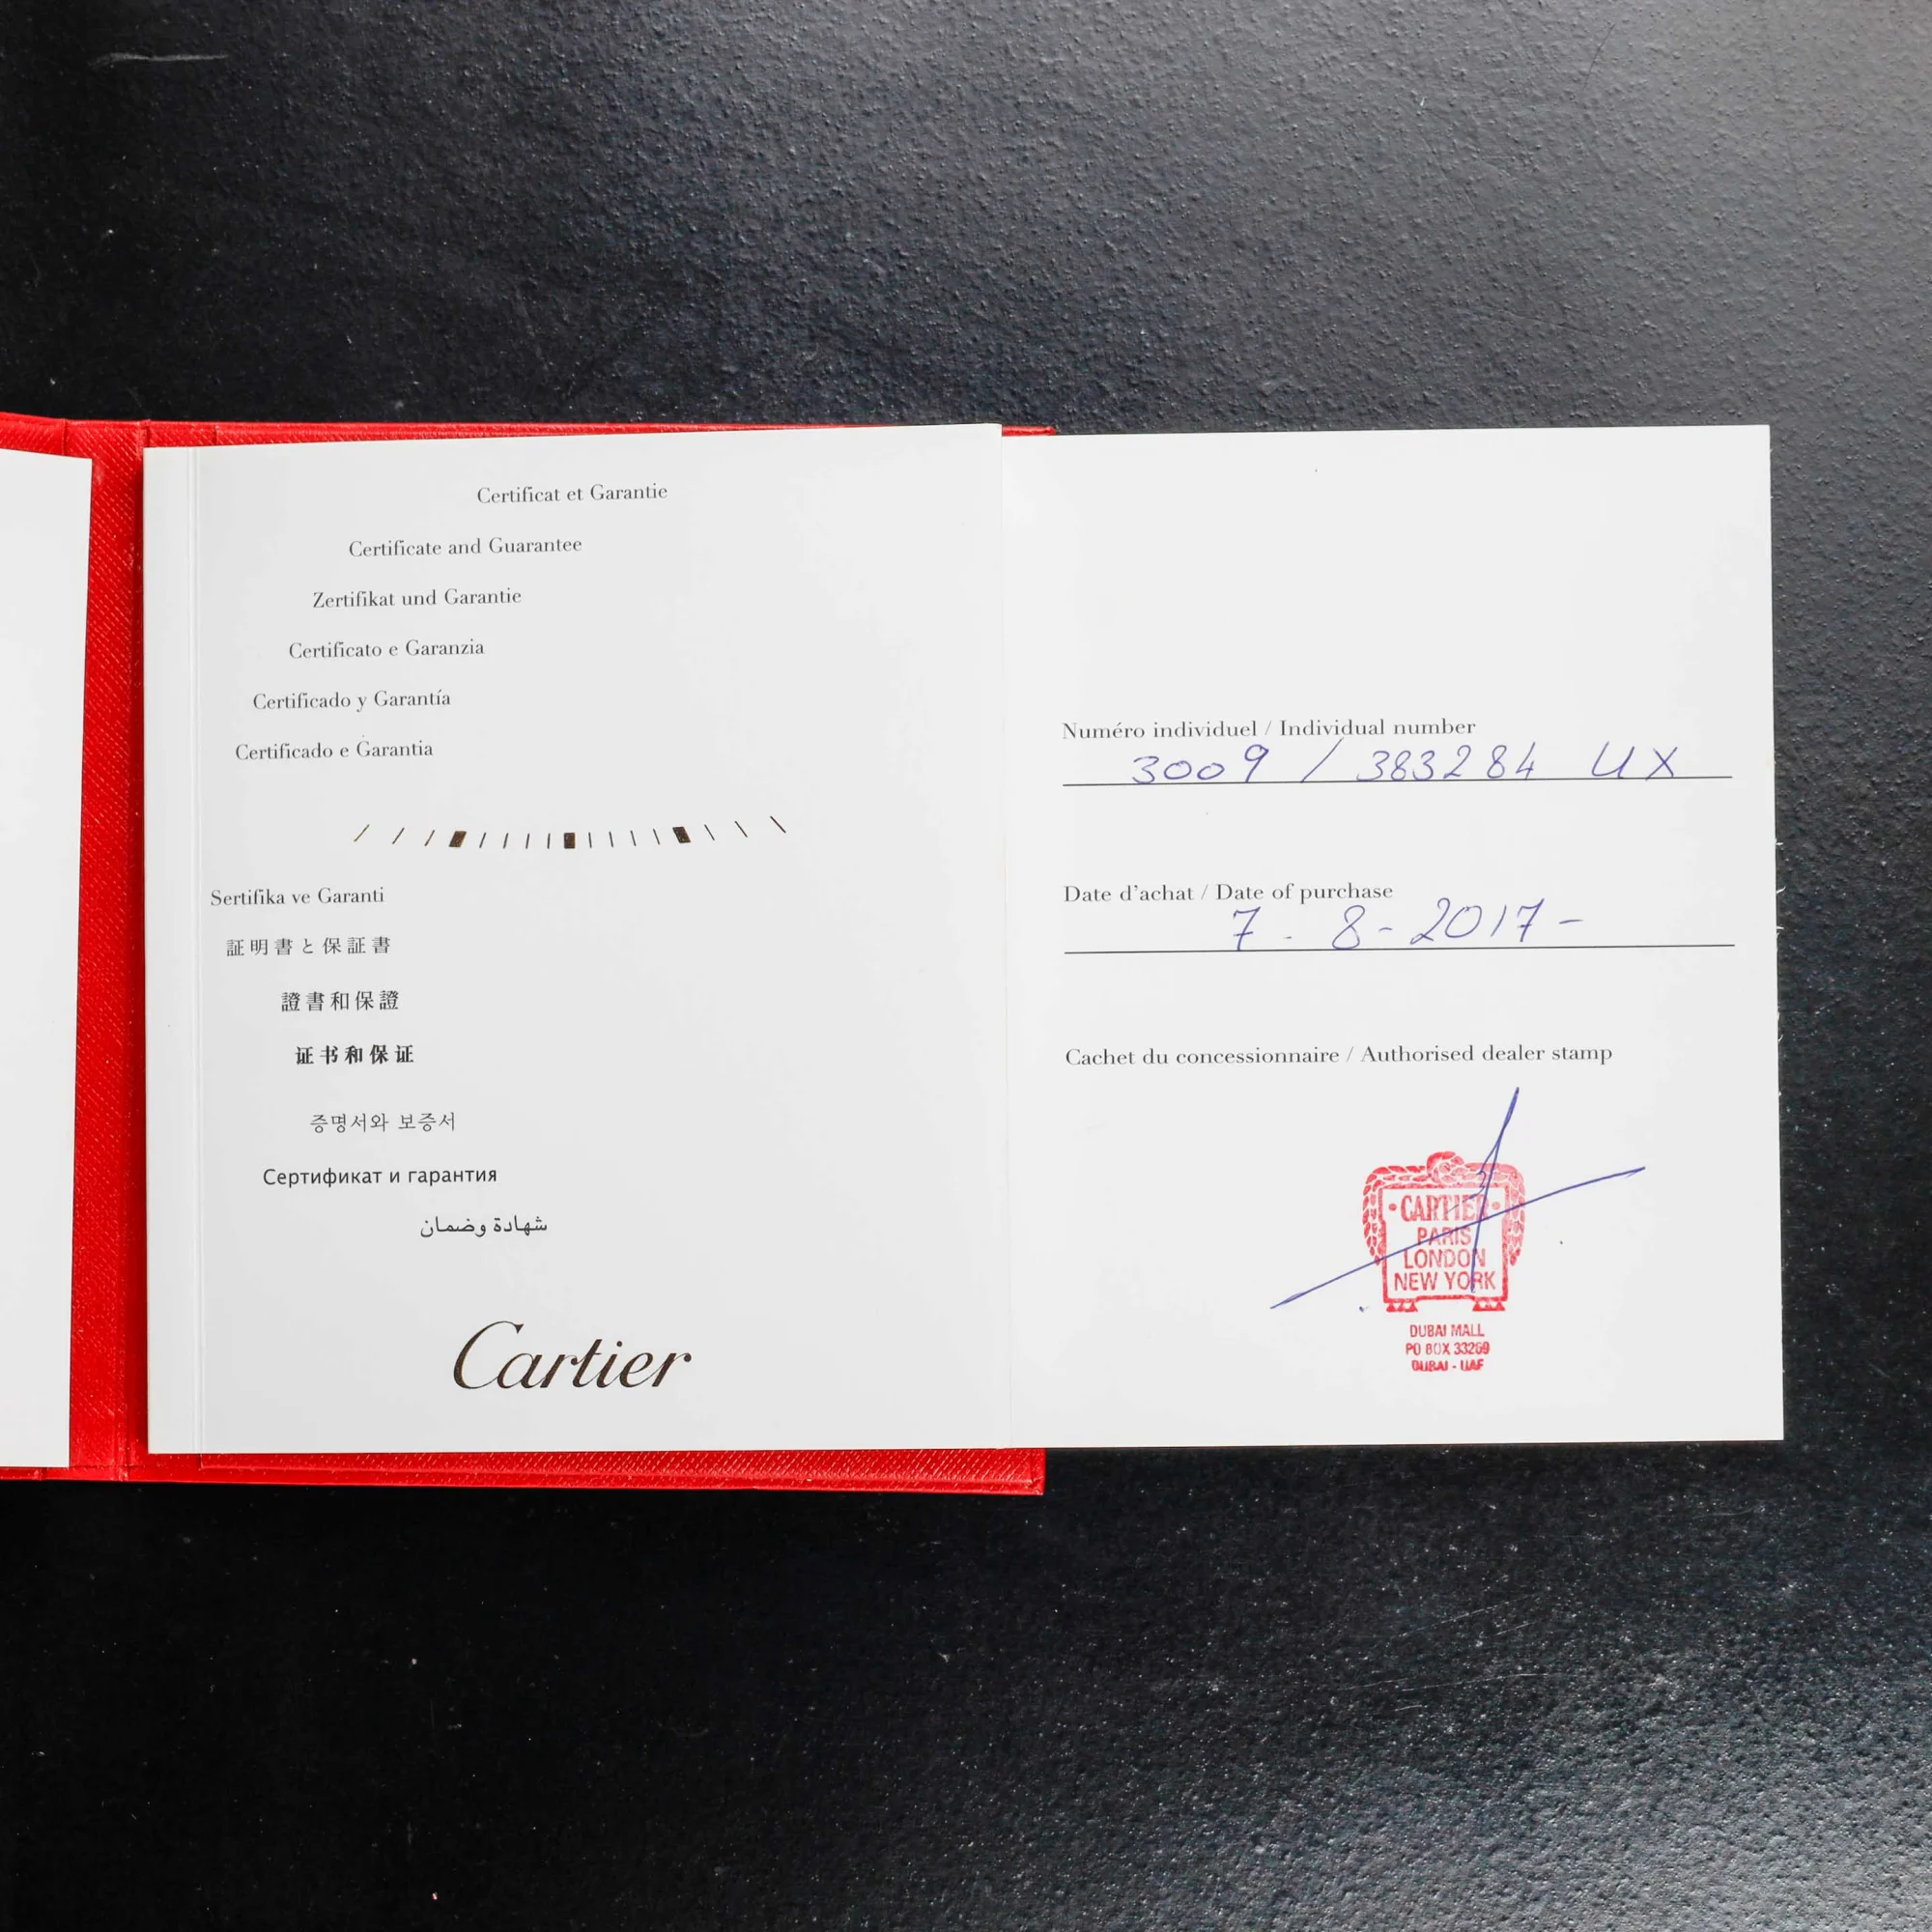 Certificat et Garantie
Certificate and Guarantee
Zertifikat und Garantie
Certificato e Garanzia
Certificado y Garantía
Certificado e Garantia
Sertifika ve Garanti
証明書と保証書
證書和保證
证书和保证
증명서와 보증서
Сертификат и гарантия
شهادة وضمان
Cartier
Numéro individuel / Individual number
3009 / 383284 UX
Date d'achat / Date of purchase
7 - 8 - 2017 -
Cachet du concessionnaire / Authorised dealer stamp
CARTIER
PARIS
LONDON
NEW YORK
DUBAI MALL
PO BOX 33269
DUBAI - UAE